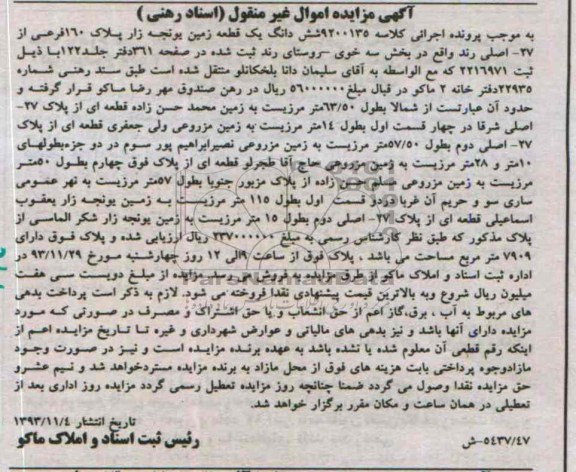 آگهی مزایده اموال غیر منقول (اسناد رهنی)
به موجب پرونده اجرائی کلاسه ۹۲۰۰۱۳۵شش دانگ یک قطعه زمین یونجه زار پلاک ۱۶۰فرعی از
۲۷- اصلی رند واقع در بخش سه خوی -روستای رند ثبت شده در صفحه ۳۶۱دفتر جلد۱۲۲با ذیل
ثبت ۲۲۱۶۹۷۱ که مع الواسطه به آقای سلیمان دانا بلخکانلو منتقل شده است طبق سند رهنی شماره
۲۲۹۳۵دفتر خانه ۲ ماکو در قبال مبلغ۵۶۰۰۰۰۰۰ ریال در رهن صندوق مهر رضا ماکو قرار گرفته و
حدود آن عبارتست از شمالا بطول ۶۳/۵۰متر مرزیست به زمین محمد حسن زاده قطعه ای از پلاک ۲۷-
اصلی شرقا در چهار قسمت اول بطول ۱۴متر مرزیست به زمین مزروعی ولی جعفری قطعه ای از پلاک
۲۷- اصلی دوم بطول ۵۷/۵۰متر مرزیست به زمین مزروعی نصیرابراهیم پور سوم در دو جزءبطولهای
۱۰متر و ۲۸متر مرزیست به زمین مزروعی حاج آقا طجرلو قطعه ای از پلاک فوق چهارم بطول ۵۰متر
مرزیست به زمین مزروعی حسن زاده از پلاک مزبور جنوبا بطول ۵۷متر مرزیست به نهر عمومی
ساری سو و حریم آن غربا دردو قسمت اول بطول ۱۱۵ متر مرزیست به زمین یونجه زار یعقوب
اسماعیلی قطعه ای از پلاک ۲۷- اصلی دوم بطول ۱۵ متر مرزیست به زمین یونجه زار شکر الماسی از
پلاک مذکور که طبق نظر کارشناس رسمی به مبلغ ۲۳۷۰۰۰۰۰۰ ریال ارزیابی شده و پلاک فوق دارای
۷۹۰۹ متر مربع مساحت می باشد ، پلاک فوق از ساعت ۹الی ۱۲ روز چهارشنبه مورخ ۹۳/۱۱/۲۹ در
اداره ثبت اسناد و املاک ماکو از طریق مزایده به فروش می رسد. مزایده از مبلغ دویست سی هفت
میلیون ریال شروع وبه بالاترین قیمت پیشنهادی نقدا فروخته می شود. لازم به ذکر است پرداخت بدهی
های مربوط به آب ، برق،گاز اعم از حق انشعاب و یا حق اشتراک و مصرف در صورتی که مورد
مزایده دارای آنها باشد و نیز بدهی های مالیاتی و عوارض شهرداری و غیره تا تاریخ مزایده اعم از
اینکه رقم قطعی آن معلوم شده یا نشده باشد به عهده برنده مزایده است و نیز در صورت وجود
مازادوجوه پرداختی بابت هزینه های فوق از محل مازاد به برنده مزایده مستردخواهد شد و نیم عشرو
حق مزایده نقدا وصول می گردد ضمنا چنانچه روز مزایده تعطیل رسمی گردد مزایده روز اداری بعد از
تعطیلی در همان ساعت و مکان مقرر برگزار خواهد شد.
تاریخ انتشار ۱۳۹۳/۱۱/۴
۵۴۳۷/۴۷-ش رئیس ثبت اسناد و املاک ماکو
ParsNamadData